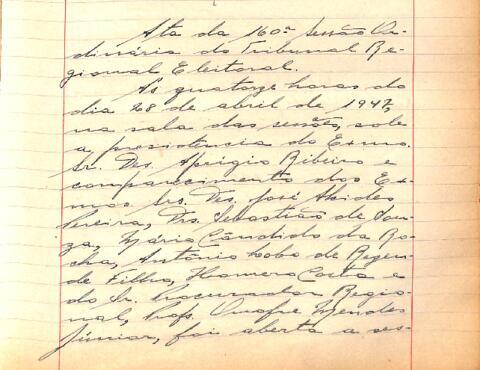 Ata da 160ª Sessão Or-
dinária do Tribunal Re-
gional Eleitoral.
Ás quatorze horas do
dia 28 de abril de 1947,
na sala das sessões, sob
a presidência do Exmo.
Sr. Des. Aprígio Ribeiro e
comparecimento dos Ex-
mos Srs. Des. José Alcides
Pereira, Drs. Sebastião de Sou-
za, Mário Cândido da Ro-
cha, Antônio Lobo de Rezen-
de Filho, Homero Costa e
do Sr. Procurador Regio-
nal, Prof. Onofre Mendes
Júnior, foi aberta a ses-